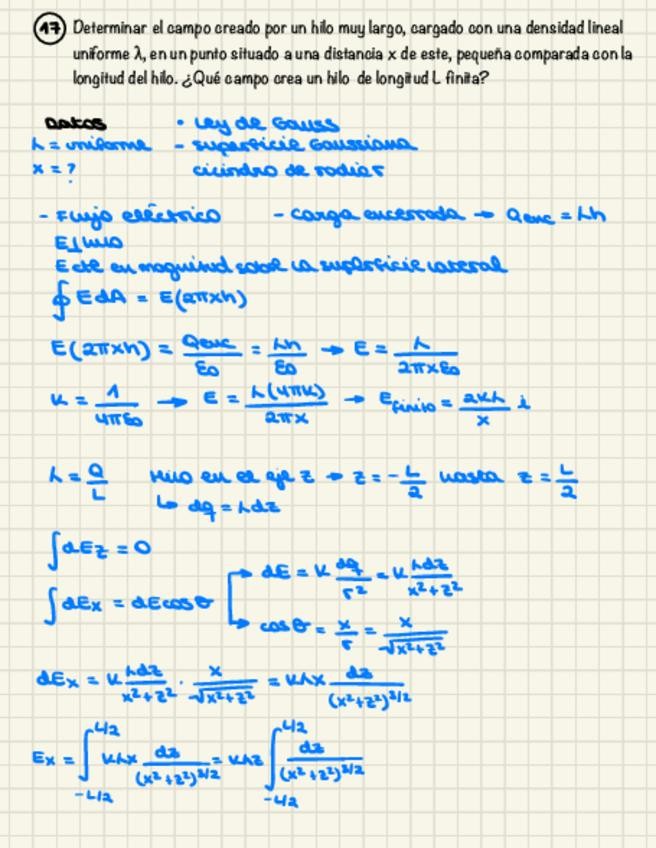 17 Determinar el campo creado por un hilo muy largo, cargado con una densidad lineal
uniforme λ, en un punto situado a una distancia x de este, pequeña comparada con la
longitud del hilo. ¿Qué campo crea un hilo de longitud L finita?
DATOS • Ley de Gauss
λ = uniforme - superficie Gaussiana
x = ? cilindro de radio r
- Flujo eléctrico - carga encerrada → Qenc = λh
E⊥hilo
E cte en magnitud sobre la superficie lateral
∮ E dA = E(2πxh)
E(2πxh) = Qenc/ε0 = λh/ε0 → E = λ/2πxε0
K = 1/4πε0 → E = λ(4πK)/2πx → Efinito = 2Kλ/x i
λ = Q/L Hilo en el eje z → z = -L/2 hasta z = L/2
↳ dq = λdz
∫dEz = 0
→ dE = K dq/r² = K λdz/x²+z²
∫dEx = dEcosθ
→ cosθ = x/r = x/√x²+z²
dEx = K λdz/x²+z² · x/√x²+z² = Kλx dz/(x²+z²)^3/2
Ex = ∫_-L/2^L/2 Kλx dz/(x²+z²)^3/2 = Kλz ∫_-L/2^L/2 dz/(x²+z²)^3/2